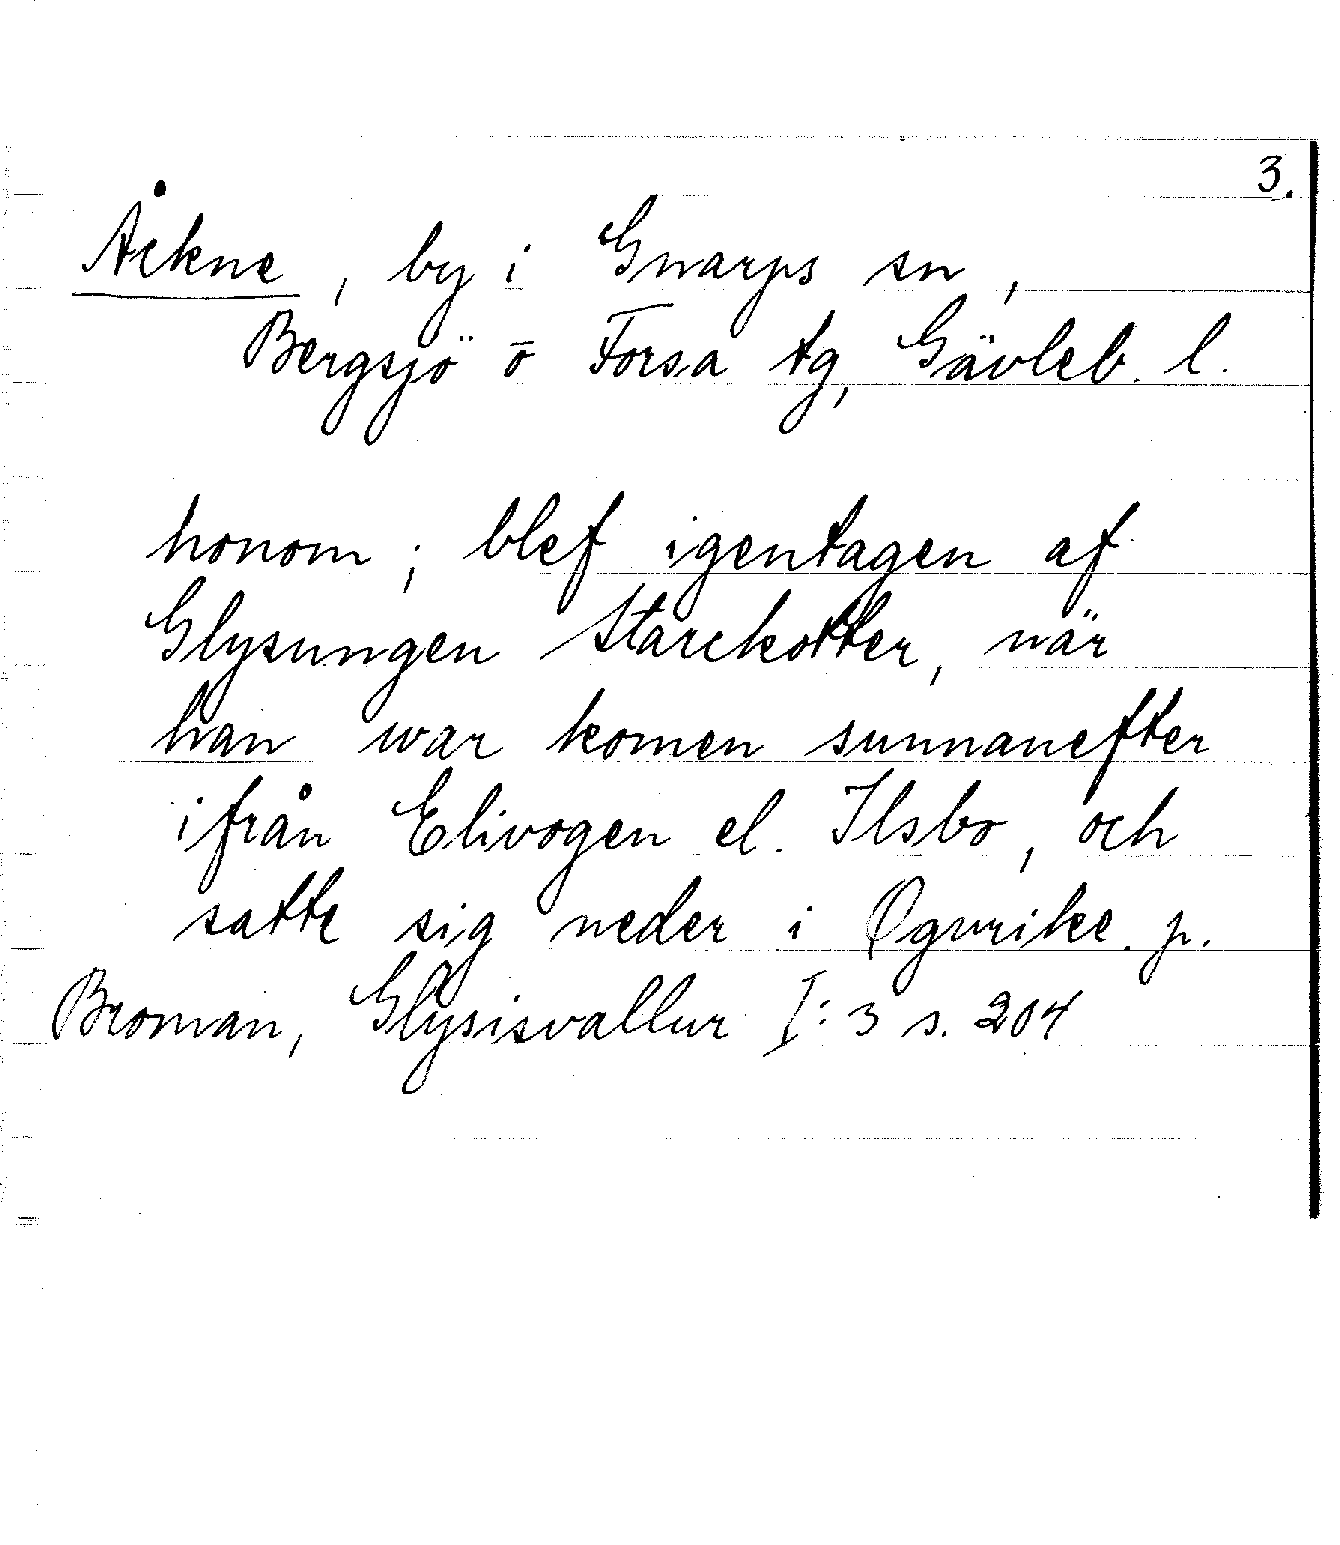 3.
Åckne, by i Gnarps sn,
Bergsjö o Forsa tg, Gävleb. l.
honom; blef igentagen af
Glysungen Starckotter, när
han war komen sunnanefter
ifrån Elivogen el. Ilsbo, och
satte sig neder i Øgvrike. p.
Broman, Glysisvallur I:3 s. 204